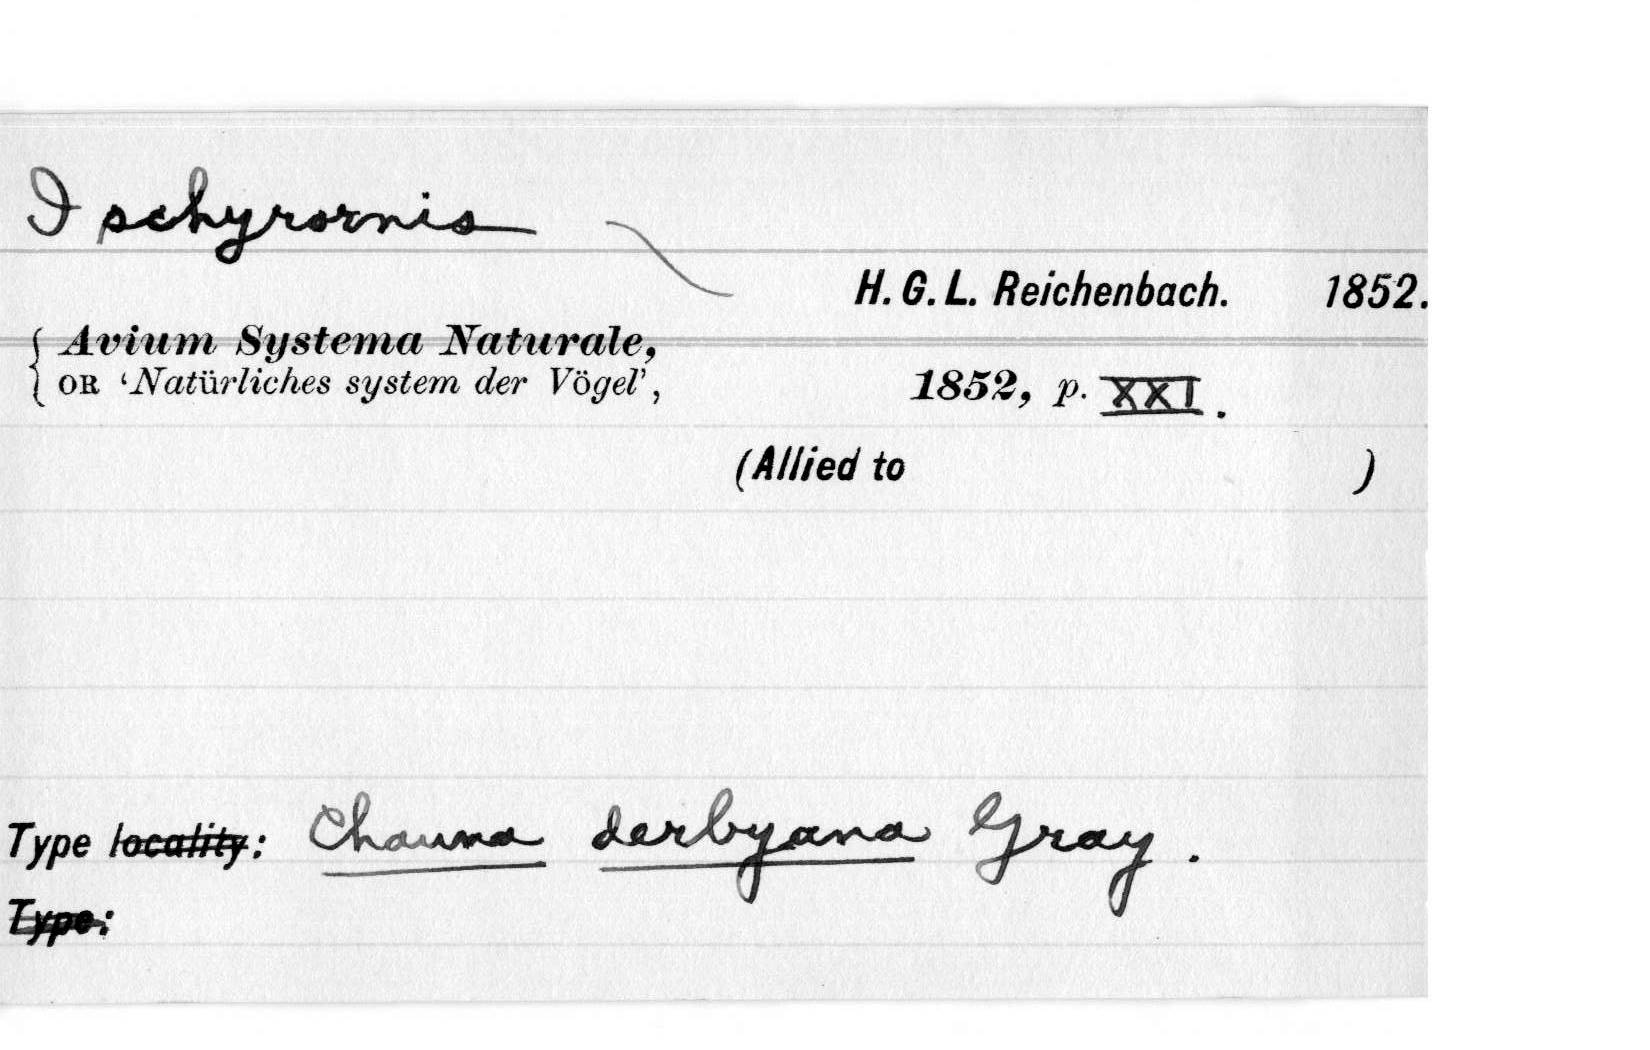 Ischyrornis
H. G. L. Reichenbach. 1852.
Avium Systema Naturale,
OR ‘Natürliches system der Vögel’, 1852, p. XXI.
(Allied to )
Type locality: Chauna derbyana Gray.
Type: